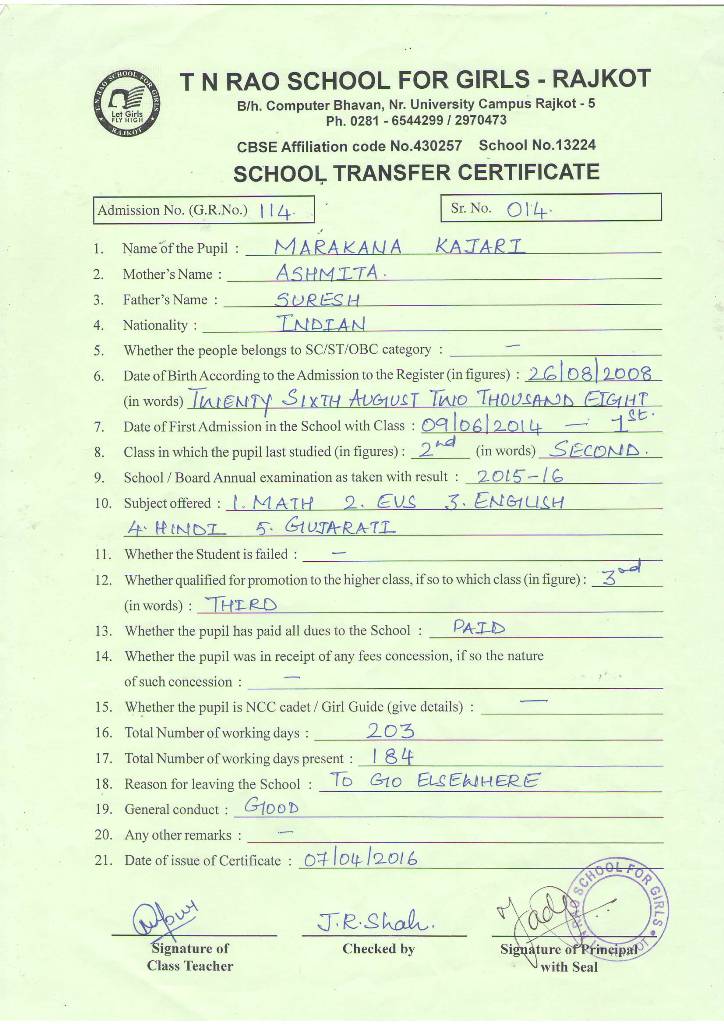 T N RAO SCHOOL FOR GIRLS - RAJKOT
T N RAO SCHOOL FOR GIRLS
Let Girls
FLY HIGH
RAJKOT
B/h. Computer Bhavan, Nr. University Campus Rajkot - 5
Ph. 0281 - 6544299 / 2970473
CBSE Affiliation code No.430257 School No.13224
SCHOOL TRANSFER CERTIFICATE
Admission No. (G.R.No.) 114. Sr. No. 014.
1. Name of the Pupil : MARAKANA KAJARI
2. Mother's Name : ASHMITA.
3. Father's Name : SURESH
4. Nationality : INDIAN
5. Whether the people belongs to SC/ST/OBC category : —
6. Date of Birth According to the Admission to the Register (in figures) : 26/08/2008
(in words) TWENTY SIXTH AUGUST TWO THOUSAND EIGHT
7. Date of First Admission in the School with Class : 09/06/2014 — 1st.
8. Class in which the pupil last studied (in figures) : 2nd (in words) SECOND.
9. School / Board Annual examination as taken with result : 2015-16
10. Subject offered : 1. MATH 2. EVS 3. ENGLISH
4. HINDI 5. GUJARATI
11. Whether the Student is failed : —
12. Whether qualified for promotion to the higher class, if so to which class (in figure) : 3rd
(in words) : THIRD
13. Whether the pupil has paid all dues to the School : PAID
14. Whether the pupil was in receipt of any fees concession, if so the nature
of such concession : —
15. Whether the pupil is NCC cadet / Girl Guide (give details) : —
16. Total Number of working days : 203
17. Total Number of working days present : 184
18. Reason for leaving the School : TO GO ELSEWHERE
19. General conduct : GOOD
20. Any other remarks : —
21. Date of issue of Certificate : 07/04/2016
J.R.Shah.
RAO SCHOOL FOR GIRLS
Signature of Checked by Signature of Principal
Class Teacher with Seal